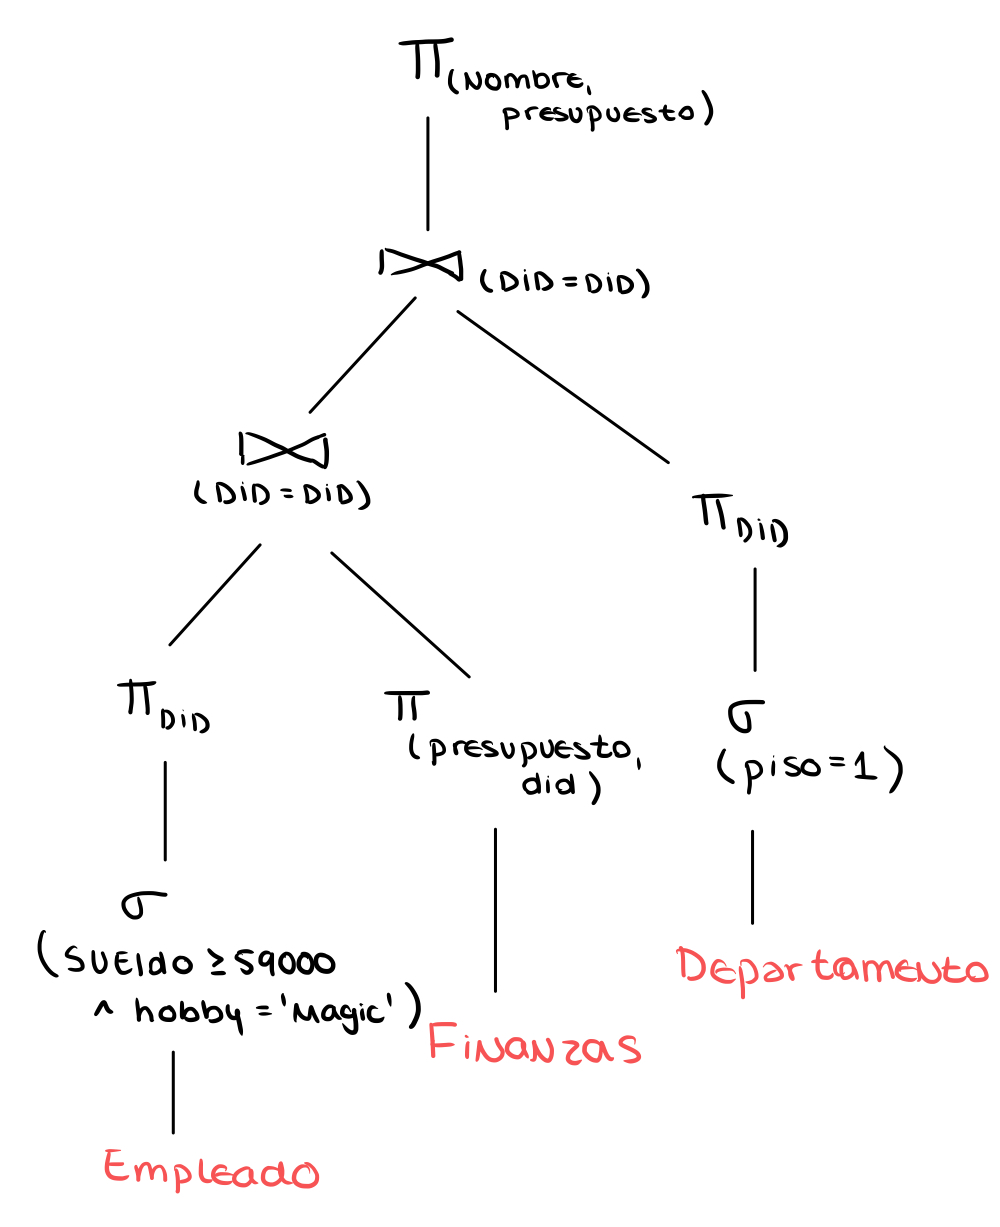 π(Nombre,
presupuesto)
⋈ (DiD = DiD)
⋈
(DiD = DiD)
π DiD
π DiD
π
(presupuesto,
did)
σ
(piso=1)
σ
(sueldo ≥ 59000
^ hobby = 'Magic')
Departamento
Finanzas
Empleado